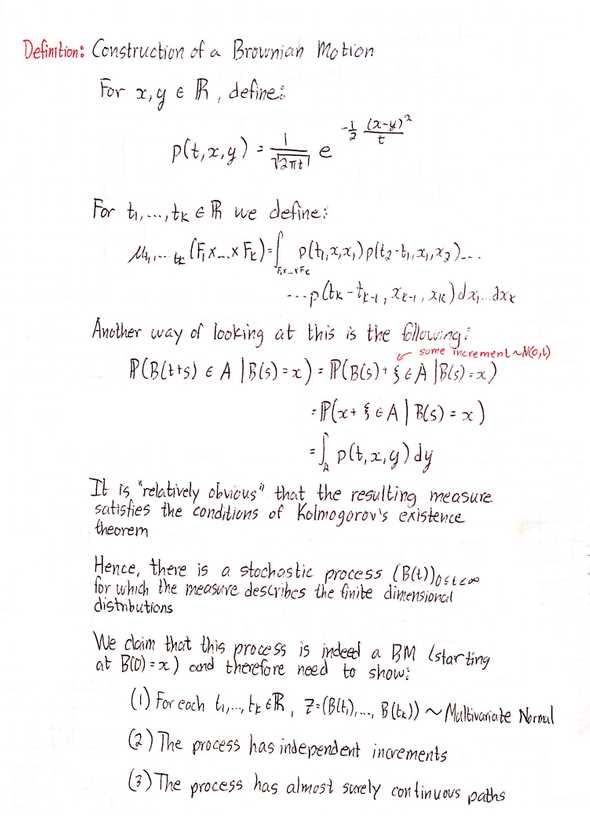 Definition: Construction of a Brownian Motion
For x, y ∈ ℝ, define:
p(t,x,y) = 1/√(2πt) e^(-1/2 (x-y)²/t)
For t₁,...,tₖ ∈ ℝ we define:
μ_{t₁,...,tₖ}(F₁×...×Fₖ) = ∫_{F₁×...×Fₖ} p(t₁,x,x₁)p(t₂-t₁,x₁,x₂)...
...p(tₖ-tₖ₋₁, xₖ₋₁, xₖ)dx₁...dxₖ
Another way of looking at this is the following:
some increment ~N(0,t)
ℙ(B(t+s) ∈ A | B(s)=x) = ℙ(B(s)+ξ ∈ A | B(s)=x)
= ℙ(x+ξ ∈ A | B(s)=x)
= ∫_A p(t,x,y)dy
It is "relatively obvious" that the resulting measure
satisfies the conditions of Kolmogorov's existence
theorem
Hence, there is a stochastic process (B(t))_{0≤t<∞}
for which the measure describes the finite dimensional
distributions
We claim that this process is indeed a BM (starting
at B(0)=x) and therefore need to show:
(1) For each t₁,...,tₖ ∈ ℝ, Z=(B(t₁),..., B(tₖ)) ~ Multivariate Normal
(2) The process has independent increments
(3) The process has almost surely continuous paths